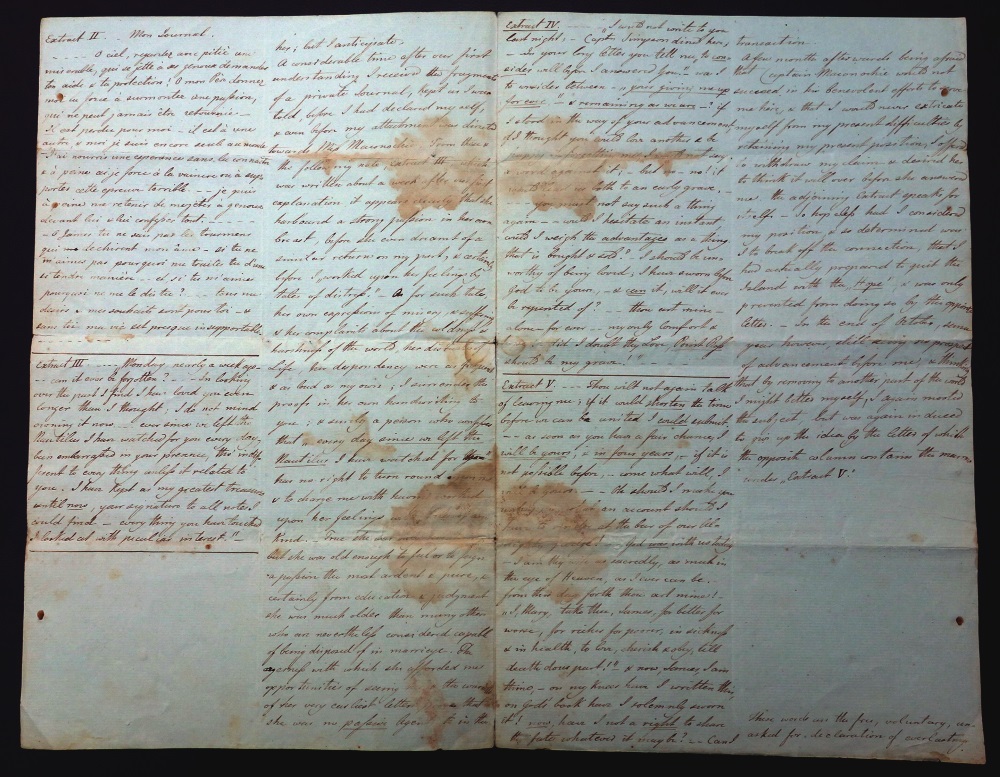 Extract II. - Mon Journal.
O ciel, regardez avec pitié une
misérable, qui se jette à ses genoux demander
ton aide & ta protection! O mon Dieu donnez
moi la force à surmonter une passion,
qui ne peut jamais être retournée -
Il est perdu pour moi - il est à une
autre, & moi je suis encore seule au monde
J'ai nourris une espérance sans la connaître
& à peine ai je force à la vaincre ou à sup
porter cette épreuve terrible - - je puis
à peine me retenir de me jeter à genoux
devant lui & lui confesser tout. -
O James tu ne sais pas les tourmens
qui me déchirent mon âme - si tu ne
m'aimes pas pourquoi me traiter d'une
si tendre manière - et si tu m'aimes
pourquoi ne me le dis tu? - - tous mes
désirs & mes souhaits sont pour toi - &
sans toi ma vie est presque insupportable
Extract III. - - Monday nearly a week ago
- can it ever be forgotten? - - In looking
over the past I find I have loved you even
longer than I thought; I do not mind
owning it now - - ever since we left the
Nautilus I have watched for you every day,
been enraptured in your presence, & indif-
ferent to every thing unless it related to
you. I have kept as my greatest treasure
until now, your signature to all notes I
could find - every thing you have touched
I looked at with peculiar interest." -
her; but I anticipate.
A considerable time after our first
understanding I received the fragment
of a private Journal, kept as I was
told, before I had declared myself,
& even before my attachment was directed
towards Miss Maconochie. From this &
the following note Extract III which
was written about a week after our first
explanation it appears clearly that she
harboured a strong passion in her own
breast, before she even dreamt of a
similar return on my part, & certainly
before I worked upon her feelings by
tales of distress! - As for such tales,
her own expression of misery & suffering
& her complaints about the coldness &
harshness of the world, her dis
life, her dependency were as frequent
& as bad as my own; I surrender the
proofs in her own handwriting to
you; & surely a person who confesses
that "every day since we left the
Nautilus I have watched for you"
has no right to turn round
& to charge me with having worked
upon her feelings
kind. True she was
but she was old enough to feel or to feign
a passion the most ardent & pure, &
certainly from education & judgment
she was much older than many others
who are nevertheless considered capable
of being disposed of in marriage. The
openness with which she afforded me
opportunities of seeing the
of her very earliest letters that
she was no passive agent in the
Extract IV. - - I would not write to you
last night; - Captn. Simpson dined here,
- In your long letter you tell me, to con-
sider well before I answered you. - was I
to consider between - "your giving me up
for ever - & remaining as we are -? if
I stood in the way of your advancement,
if I thought you would love another & be
say,
& word against it; - but no - no! it
to an early grave, -
must not say such a thing
again - would I hesitate an instant
would I weigh the advantages as a thing
that is bought & sold? - I should be un-
worthy of being loved, I have sworn before
God to be yours, - & can it, will it ever
be repented of? - thou art mine -
alone - for ever - my only comfort &
did I doubt thy love, Point Puer
should be my grave!
Extract V. - - Thou wilt not again talk
of leaving me; if it would shorten the time
before we can be united I could submit,
- - as soon as you have a fair chance, I
will be yours, & in four years - if it is
not possible before, - come what will, I
yours - - Oh should I make you
an account should I
at the bar of our Al
God was with us today
- I am thy as sacredly, as much in
the eye of Heaven, as I ever can be.
from this day forth thou art mine! -
"I, Mary, take thee, James, for better for
worse, for richer for poorer, in sickness
& in health, to love, cherish & obey, till
death do us part!" - & now, James, I am
thine, - on my knees have I written this,
on God's book have I solemnly sworn
it! now, have I not a right to share
thy fate whatever it may be? - - Can I
transaction.
A few months afterwards being afraid
that Captain Maconochie would not
succeed in his benevolent efforts to
me here, & that I would never extricate
myself from my present difficulties by
retaining my present position, I offered
to withdraw my claim & desired her
to think it well over before she answered
me. the adjoining Extract speaks for
itself. - So hopeless had I considered
my position, & so determined was
I to break off the connection, that I
had actually prepared to quit the
Island with the & was only
prevented from doing so by the opposite
letter. - In the end of October, same
year however still seeing no prospect
of advancement before me, & thinking
that by removing to another part of the world
I might better myself, I again mooted
the subject, but was again induced
to give up the idea by the letter of which
the opposite column contains the
under "Extract V."
These words are the free, voluntary, un-
asked for, declaration of everlasting